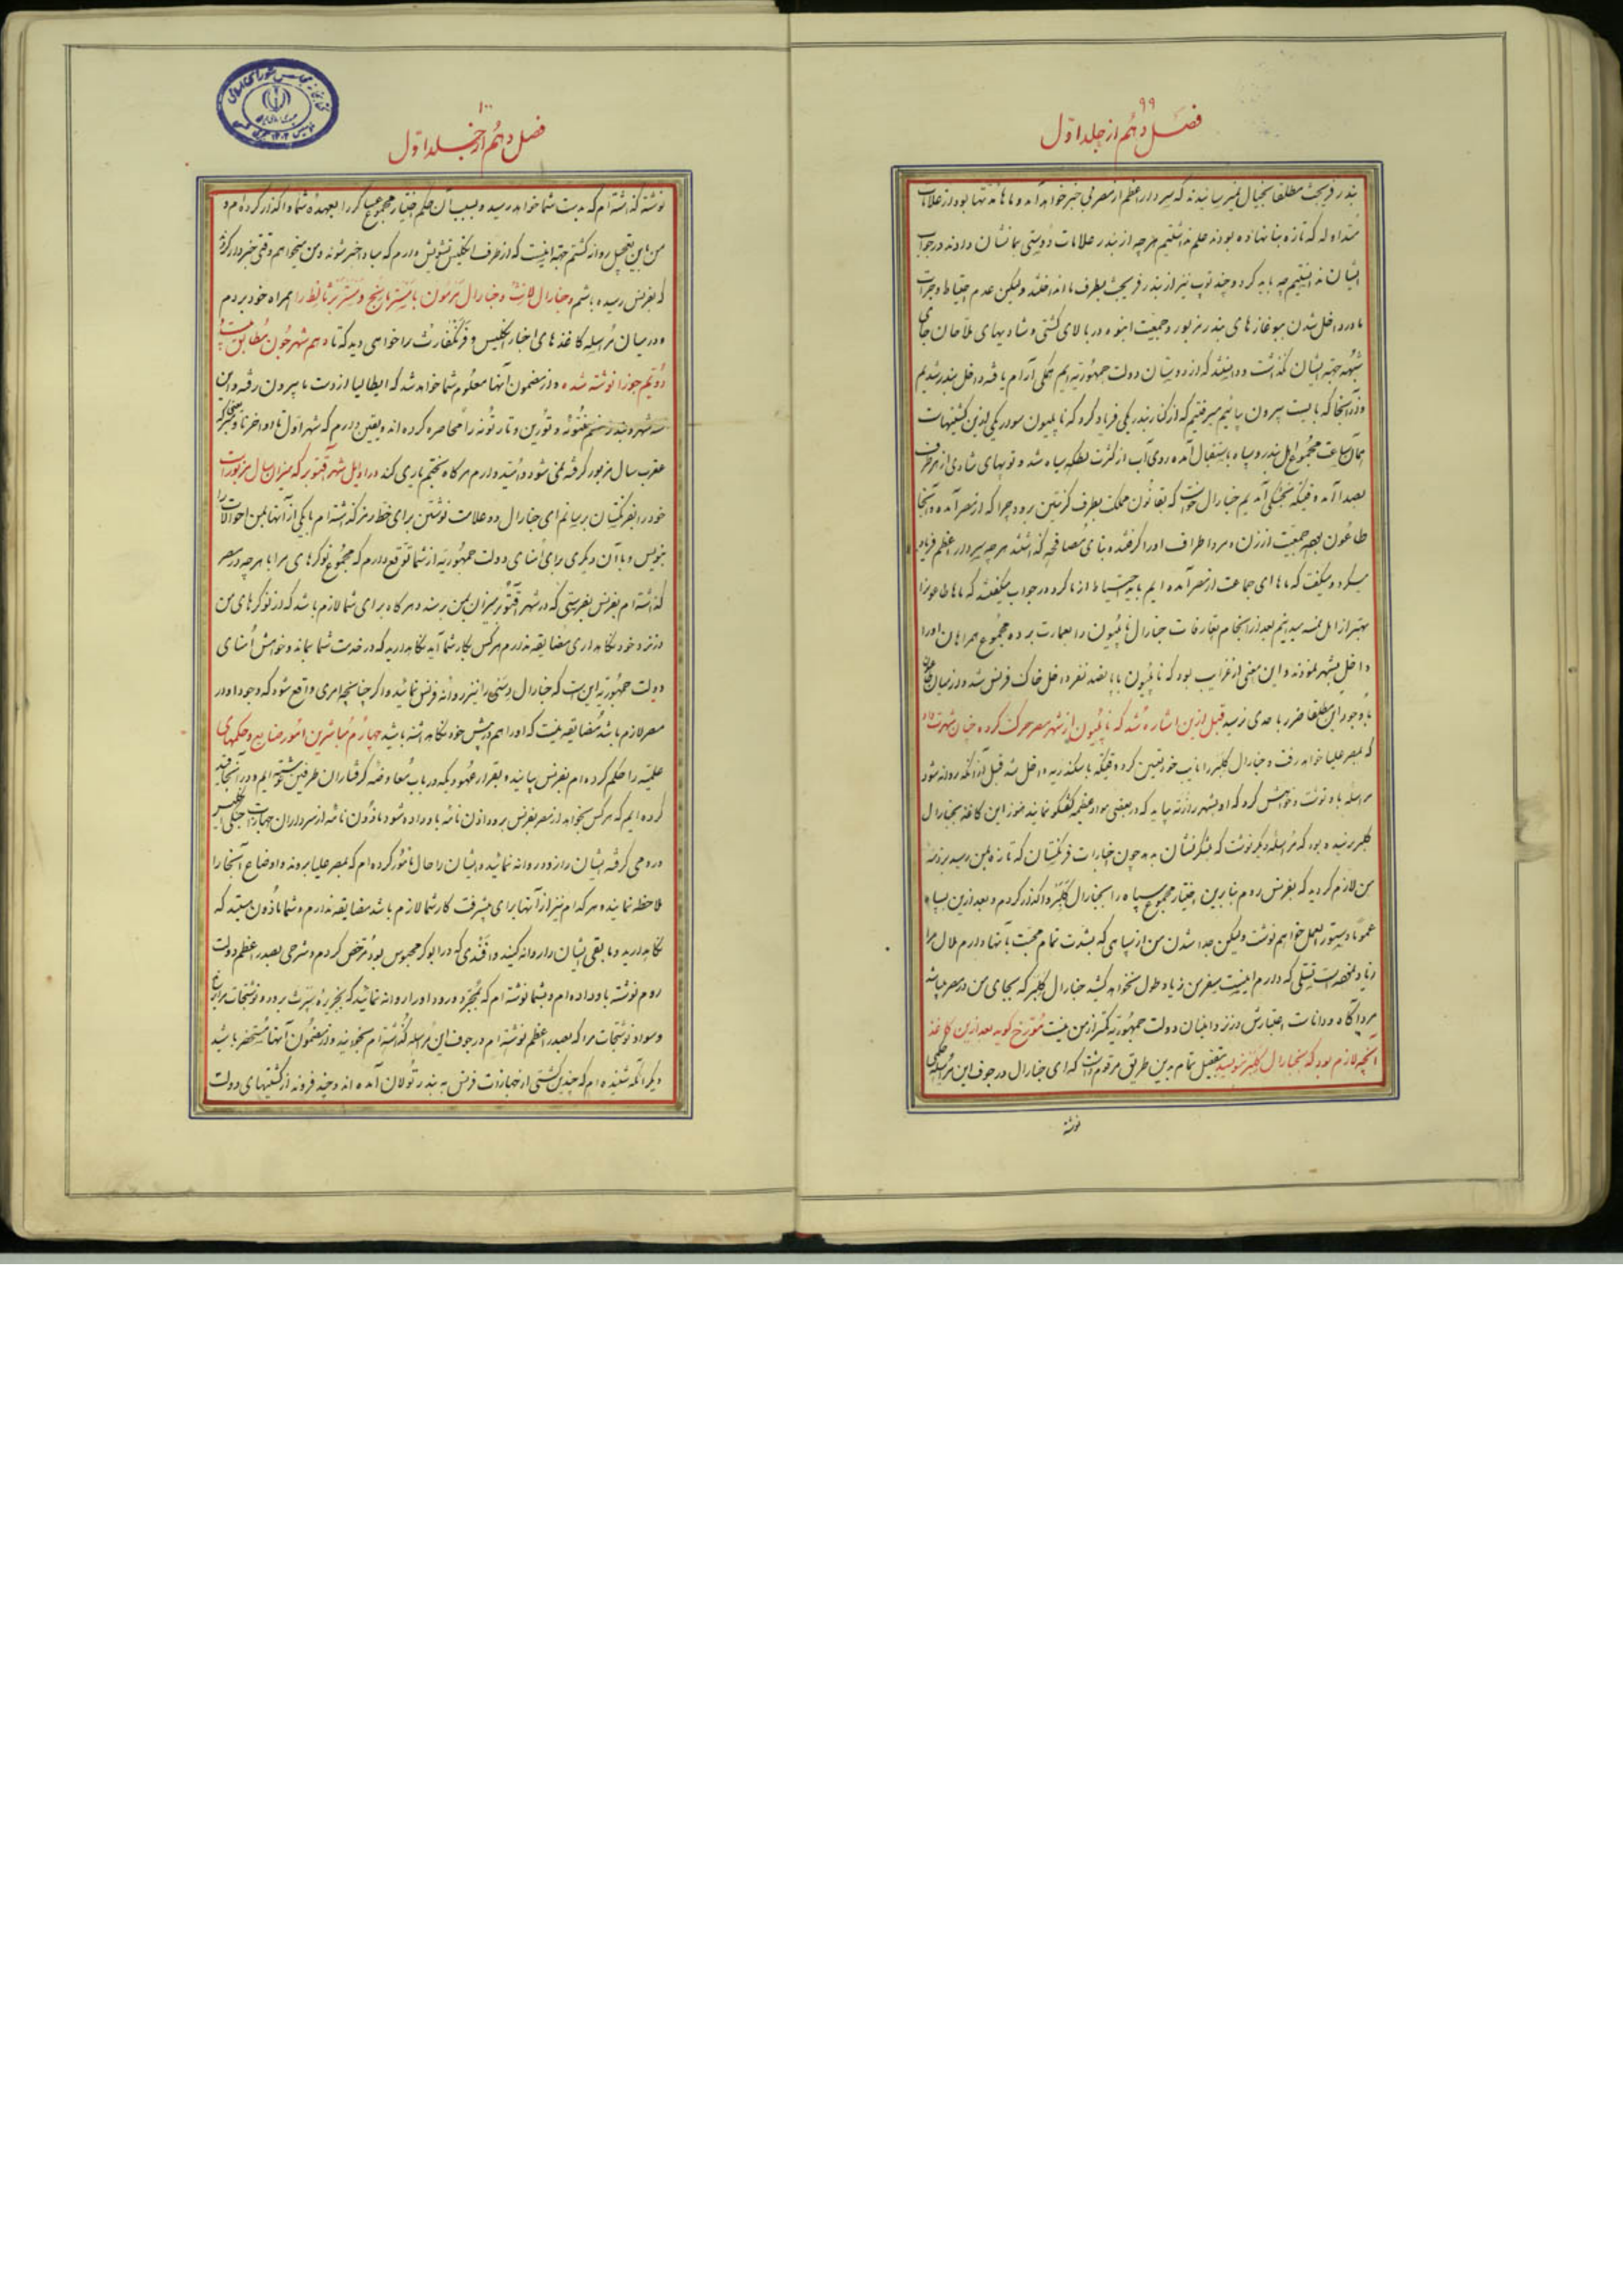 ۹۹
فصل دهم از جلد اول
بندر فریجت مطلقا بخیال نمیرسانیدند که سردار اعظم از مصر بی خبر خواهد آمد و ماها نه تنها بودن علامات
متداوله که تازه بنا نهاده بودند علم نداشتیم هرچه از بندر علامات دوستی بما نشان دادند در جواب
ایشان ندانستیم چه باید کرد و چند توپ نیز از بندر فریجت بطرف ما انداختند ولیکن عدم احتیاط و جرات
ما در داخل شدن ببوغازهای بندر مزبور و جمعیت انبوه در بالای کشتی و شادیهای ملاحان جای
شبهه بجهة ایشان نگذاشت و دانستند که از دوستان دولت جمهوریه ایم همگی آرام یافته داخل بندر شدیم
و در آنجا که بایست بیرون بیائیم میرفتیم که از کنار بندر یکی فریاد کرد که ناپلیون سوار یکی ازین کشتیهاست
همان ساعت مجموع اهل بندر و سپاه باستقبال آمده روی آب از کثرت بطکه سیاه شد و توپهای شادی از هر طرف
بصدا آمد وقتیکه بخشکی آمدیم جنارال خواست که بقانون مملکت بطرف کرنتین برود چرا که از مصر آمده و آنجا
طاعون بود جمعیت از زن و مرد اطراف او را گرفتند و بنای مصافحه گذاشتند هرچه سردار اعظم فریاد
میکرد و میگفت که ماها ای جماعت از مصر آمده ایم باید احتیاط از ما کرد در جواب میگفتند که ماها طاعون را
بهتر از اهل نمسه میدانیم بعد از انجام تعارفات جنارال ناپلیون را بعمارت برده مجموع همراهان او را
داخل شهر نمودند و این معنی از غرایب بود که ناپلیون با پانصد نفر داخل خاک فرنس شد و در میان طاعون
با وجود این مطلقا ضرر باحدی نرسید قبل ازین اشاره شد که ناپلیون از شهر مصر حرکت کرده چنان شهرت داد
که بمصر علیا خواهد رفت و جنارال کلبر را نایب خود تعیین کرد وقتیکه باسکندریه داخل شد قبل از آنکه روانه شود
مراسله باو نوشت و خواهش کرد که او بشهر رزته بیاید که در بعضی مواد عظیمه گفتگو نمایند هنوز این کاغذ بجنارال
کلبر نرسیده بود که مراسله دیگر نوشت که بلشکر نشان بدهد چون خبارات فرنگستان که تازه بمن رسید بر ذمه
من لازم گردید که بفرنس روم بنابرین اختیار مجموع سپاه را بجنارال کلبر واگذار کردم و بعد ازین بسپاه
عموما دستور العمل خواهم نوشت ولیکن جدا شدن من از سپاهی که بشدت تمام محبت بآنها دارم ملال مرا
زیاد نموده است تسلی که دارم اینست سفر من زیاد طول نخواهد کشید جنارال کلبر که بجای من در مصر میباشد
مرد آگاه و داناست اعتبارش در نزد اعیان دولت جمهوریه کمتر از من نیست مورخ گوید بعد ازین کاغذ
آنچه لازم بود که بجنارال کلبر بنویسید بتفصیل تمام بدین طریق مرقوم داشت که ای جنارال در جوف این مراسله حکمی
نوشته
۱۰۰
فصل دهم از جلد اول
نوشته گذاشته ام که بدست شما خواهد رسید و بسبب آن حکم اختیار مجموع عساکر را بعهده شما واگذار کرده ام و
من باین تعجیل روانه گشتم جهة اینست که از طرف انگلیس تشویش دارم که مبادا خبر شوند و من میخواهم وقتی خبردار گردند
که بفرنس رسیده باشم و جنارال لانت و جنارال مرمون با مستر مانج و مستر برثالط را همراه خود بردم
و در میان مراسله کاغذهای اخبار انگلیس و فرنکفارت را خواهی دید که تا دهم شهر جون مطابق بیست
دویم جوزا نوشته شده و از مضمون آنها معلوم شما خواهد شد که ایطالیا از دست ما بیرون رفته و این
سه شهر و بندر منتونه و تورین و تارتونه را محاصره کرده اند و یقین دارم که شهر اول تا اواخر نوامبر که
عقرب سال مزبور گرفته نمی شود و امید دارم هرگاه بختم یاری کند در اوایل شهر آقتوبر که میزان سال مزبور است
خود را بفرنگستان برسانم ای جنارال دو علامت نوشتن برای خط رمز گذاشته ام با یکی از آنها بمن احوالات را
بنویس و با آن دیگری برای امنای دولت جمهوریه از شما توقع دارم که مجموع نوکرهای مرا با هرچه در مصر
گذاشته ام بفرنس بفرستی که در شهر آقتوبر میزان بمن برسند و هرگاه برای شما لازم باشد که از نوکرهای من
در نزد خود نگاه داری مضایقه ندارم هر کس بکار شما آید نگاه دارید که در خدمت شما بماند و خواهش امنای
دولت جمهوریه این است که جنارال دسی را نیز روانه فرنس نمائید و اگر چنانچه امری واقع شود که وجود او در
مصر لازم باشد مضایقه نیست که او را هم در پیش خود نگاه داشته باشید چهارم مباشرین امور صنایع و حکمهای
علمیه را حکم کرده ام بفرنس بیایند و بقرار عهود یکه در باب معاوضه گرفتاران طرفین نوشته ایم و در آنجا قید
کرده ایم که هر کس بخواهد از مصر بفرنس برود اذن نامه باو داده شود ماذون نامه از سرداران جهازات جنگی انگلیس
و رومی گرفته ایشان را زود روانه نمائید و ایشان را حال مامور کرده ام که بمصر علیا بروند و اوضاع آنجا را
ملاحظه نمایند و هر کدام نیز از آنها برای پیشرفت کار شما لازم باشد مضایقه ندارم و شما ماذون هستید که
نگاه دارید و مابقی ایشان را روانه کنید و افندی که در ابوکر محبوس بود مرخص کردم و شرحی بصدر اعظم دولت
روم نوشته باو داده ام و بشما نوشته ام که بمجرد ورود او را روانه نمائید که بجزیره سپرث برود و نوشتجات مرا برساند
و سواد نوشتجات مرا که بصدر اعظم نوشته ام در جوف این مراسله گذاشته ام بخوانید و از مضمون آنها مستحضر باشید
دیگر آنکه شنیده ام که چندین کشتی از جهازات فرنس به بندر تولان آمده اند و چند فروند از کشتیهای دولت